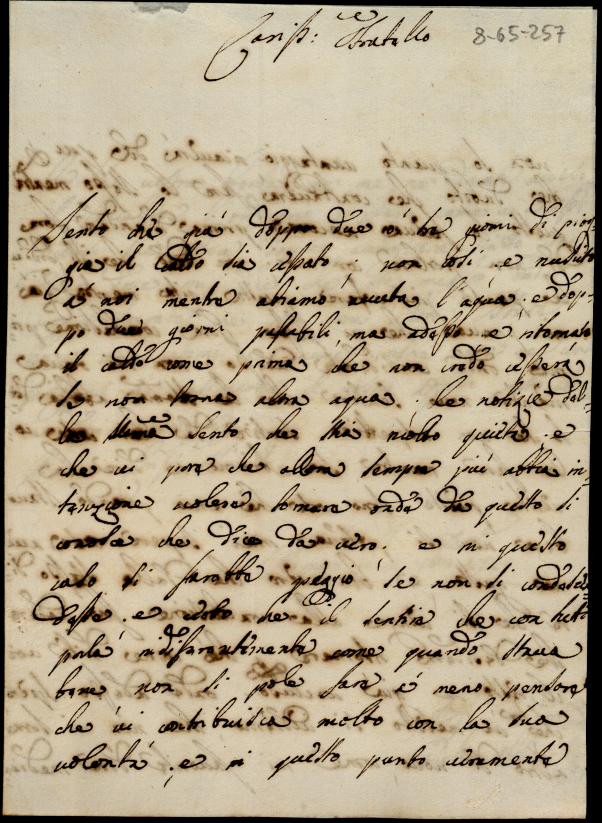 8-65-257
Cariss: Fratello
Sento che già doppo due o tre giorni di piog-
gia il caldo sia cessato; non così e
a noi mentre abiamo avuta l'aqua e dop-
po due giorni passabili, ma adesso è ritornato
il caldo come prima che non credo cessera
se non torna altra aqua. Le notizie dal-
la sento che stia molto quieta e
che vi pare che allora sempre più abbia in-
tenzione volere tornare onde da questo si
conosce che dice da vero. e in questo
caso si sarebbe peggio se non si condesce-
desse e credo che il sentire che con tutti
parla indiferentimente come quando stava
bene non si pole fare a meno pensare
che vi contribuisca molto con la sua
volontà, e in questo punto veramente